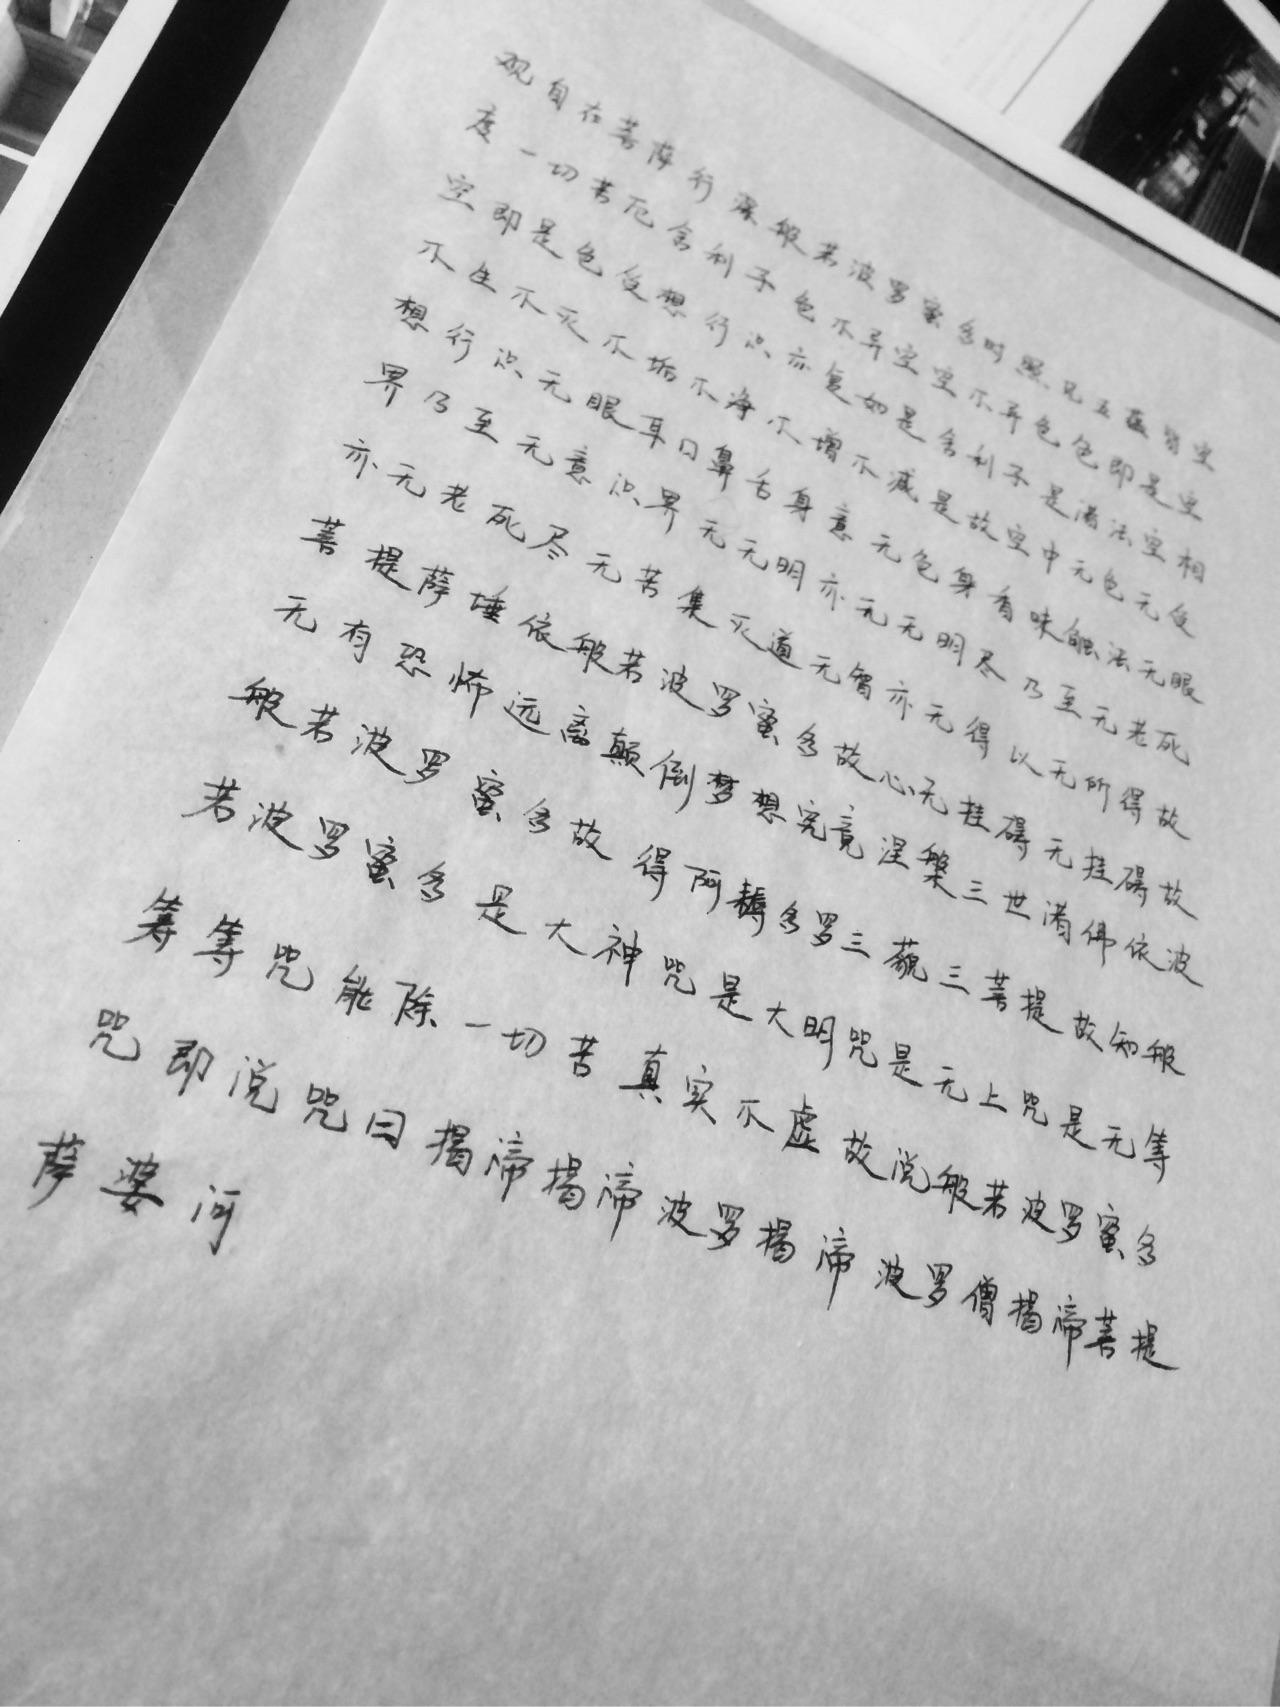 观自在菩萨行深般若波罗蜜多时照见五蕴皆空
度一切苦厄舍利子色不异空空不异色色即是空
空即是色受想行识亦复如是舍利子是诸法空相
不生不灭不垢不净不增不减是故空中无色无受
想行识无眼耳口鼻舌身意无色身香味触法无眼
界乃至无意识界无无明亦无无明尽乃至无老死
亦无老死尽无苦集灭道无智亦无得以无所得故
菩提萨埵依般若波罗蜜多故心无挂碍无挂碍故
无有恐怖远离颠倒梦想究竟涅槃三世诸佛依波
般若波罗蜜多故得阿耨多罗三藐三菩提故知般
若波罗蜜多是大神咒是大明咒是无上咒是无等
等等咒能除一切苦真实不虚故说般若波罗蜜多
咒即说咒曰揭谛揭谛波罗揭谛波罗僧揭谛菩提
萨婆诃